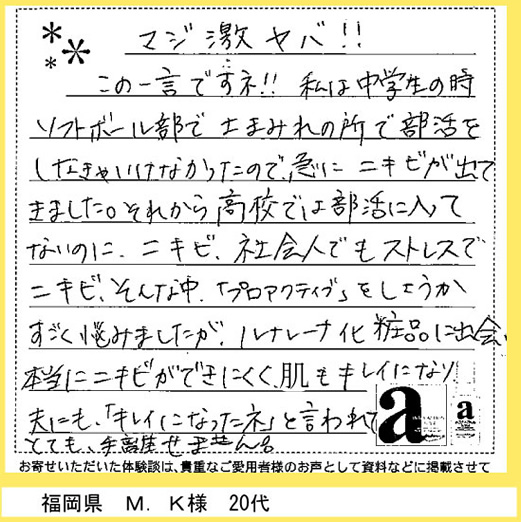 マジ激ヤバ!!
この一言ですネ!! 私は中学生の時
ソフトボール部で土まみれの所で部活を
しなきゃいけなかったので、急に ニキビが出て
きました。それから高校では部活に入って
ないのに、ニキビ、社会人でもストレスで
ニキビ、そんな中、「プロアクティブ」をしようか
すごく悩みましたが、ルナレーナ化粧品に出会い
本当にニキビができにくく、肌もキレイになり
夫にも、「キレイになったネ」と言われて
とても、手離せません。
a
a
お寄せいただいた体験談は、貴重なご愛用者様のお声として資料などに掲載させて
福岡県 M．K様 20代